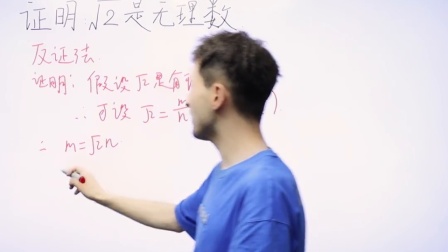 证明√2是无理数
反证法
证明: 假设√2是有
∴可设 √2 = m/n )
= m = √2n